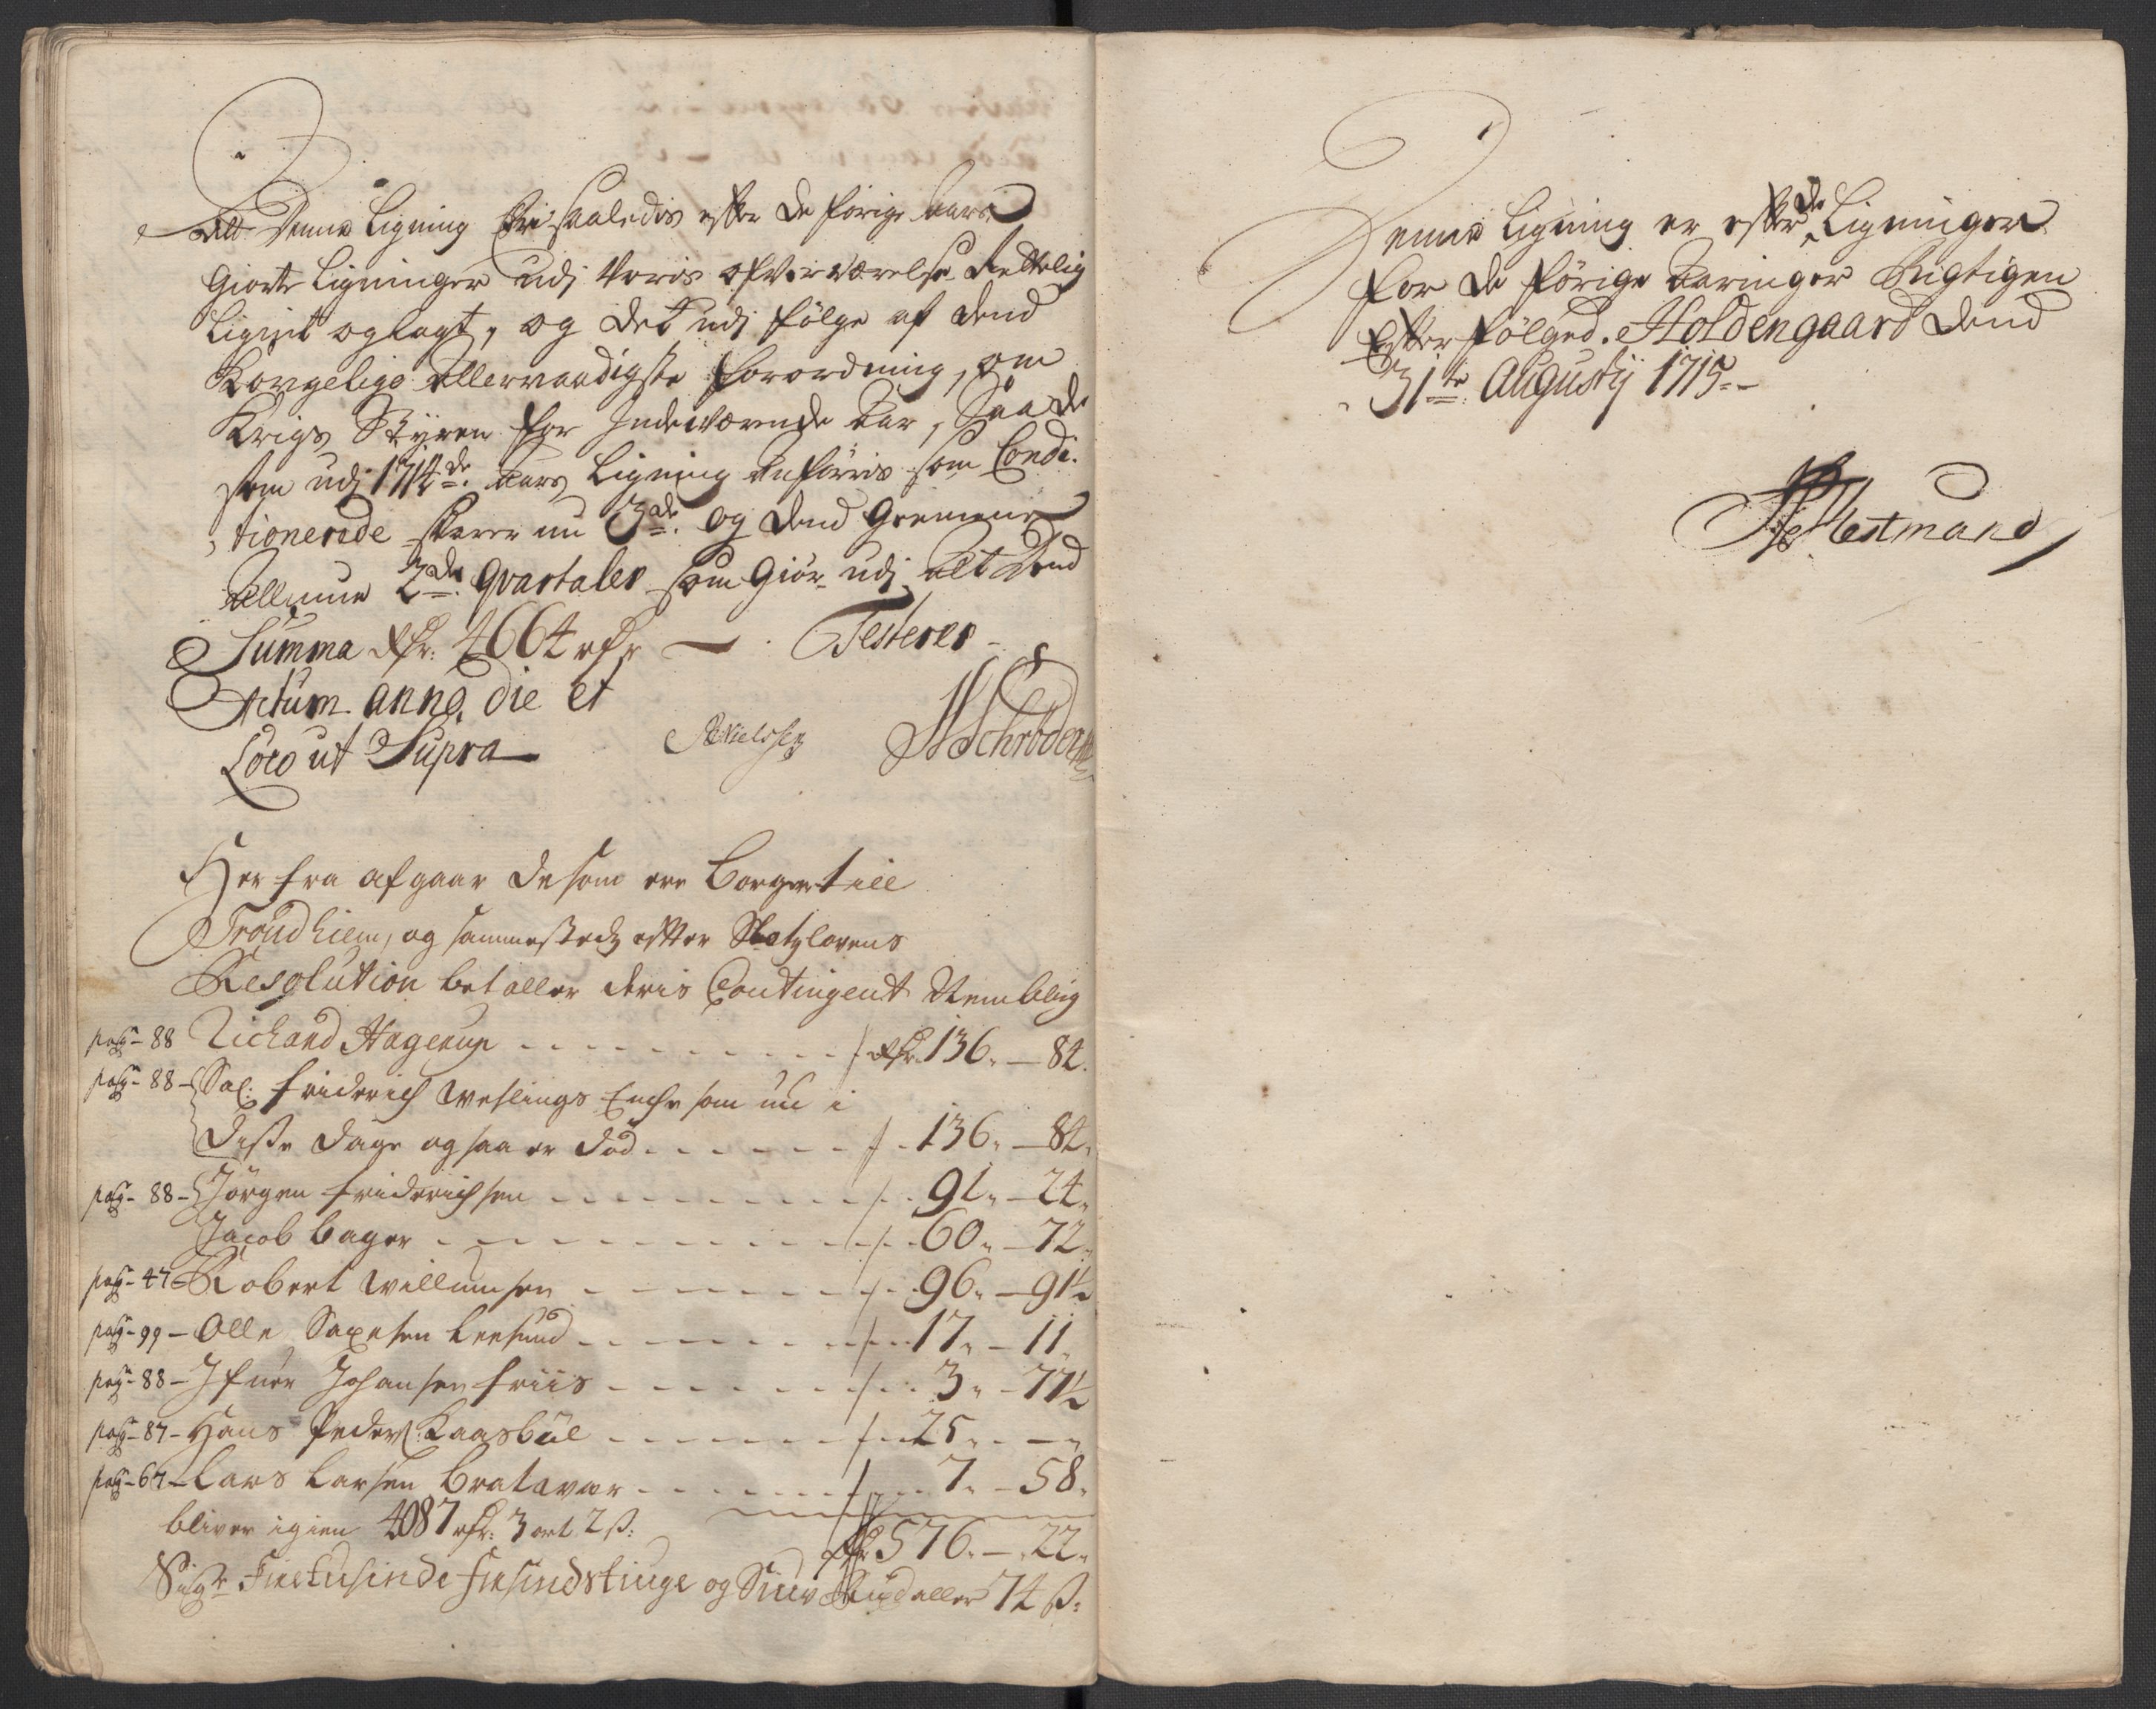 At Denne Ligning Er saaledis efter de forige Aars
Giorte Ligninger udj voris ofverværelse Rettelig
Lignet og lagt, og det udj følge af dend
Kongelige Allernaadigste forordning, om
Krigs Styren for Indeværende Aar, Saa de
som udj 1714de. Aars Ligning anføris som Condi-
tionerede skarer nu 3de. og dend Gemeene
Allmue 2de. Qvartaler som Giør udj alt dend
Summa Rdr: 4664 rdr — . Testerer -
Actum anno, die et
Loco ut Supra
Nielssen HSchrøder
Her fra afgaar de som ere borger till
Trondhiem, og sammestedz effter Slotzlovens
Resolution betaller deris Contingent Nemblig
pag - 88 Richard Hagerup - - - - - Rdr 136. — 84.
pag - 88 - Sal: Friderich Weslings Enche som nu i
disse dage og saa er død - - - - 136. — 84.
pag - 88 - Jørgen Friderichsen - - - - 91. — 24.
Jacob bager - - - - 60. — 72.
pag - 47 - Robert Willumsen - - - - 96. — 91½
pag - 99 - Olle Saxesen Leesund - - - - 17. — 11.
pag - 88 - Ifuer Johansen Friis - - - - 3. — 77½
pag - 87 - Hans Peders Kaasbøl - - - - 25. - —
pag - 67 - Lars Larsen Bratavar - - - - 7. — 58.
bliver igien 4087 rdr: 3 ort 2 s:
Rdr 576. — 22.
Siger Firetusinde Firesindstiuge og Siuv Rixdaller 74 s:
Denne Ligning er effter de Ligninger
for de forige Aaringer Rigtigen
Effterfølged. Holdengaard dend
31te Augustij 1715. -
Nestmand